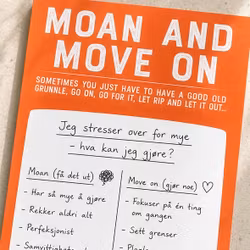 MOAN AND
MOVE ON
SOMETIMES YOU JUST HAVE TO HAVE A GOOD OLD
GRUNNLE, GO ON, GO FOR IT, LET RIP AND LET IT OUT...
Jeg stresser over for mye
- hva kan jeg gjøre?
Moan (få det ut)
- Har så mye å gjøre
- Rekker aldri alt
- Perfeksjonist
Move on (gjør noe)
- Fokuser på én ting
om gangen
- Sett grenser